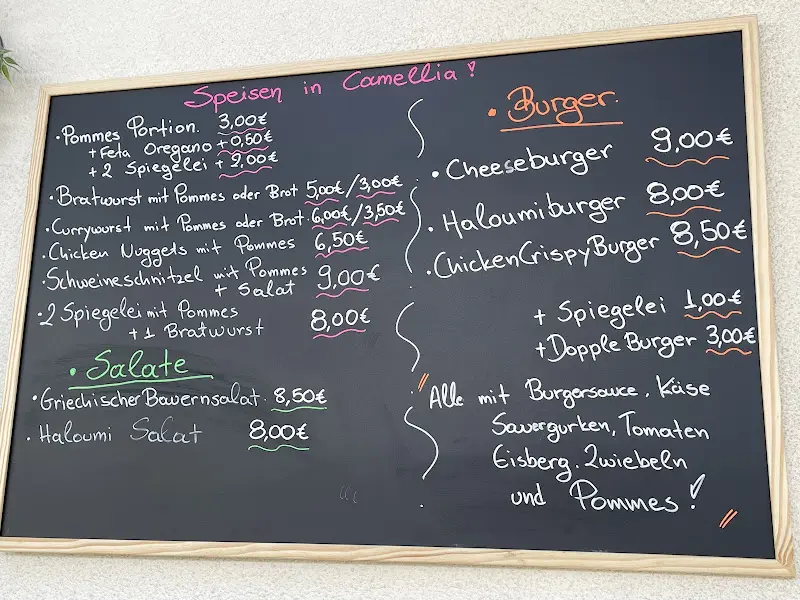 Speisen in Camellia!
• Pommes Portion. 3,00€
+ Feta Oregano + 0,50€
+ 2 Spiegelei + 2,00€
• Bratwurst mit Pommes oder Brot 5,00€/3,00€
• Currywurst mit Pommes oder Brot. 6,00€/3,50€
• Chicken Nuggets mit Pommes 6,50€
• Schweineschnitzel mit Pommes
+ Salat 9,00€
• 2 Spiegelei mit Pommes
+ 1 Bratwurst 8,00€
• Salate
• Griechischer Bauernsalat. 8,50€
• Haloumi Salat 8,00€
• Burger.
• Cheeseburger 9,00€
• Haloumiburger 8,00€
• ChickenCrispyBurger 8,50€
+ Spiegelei 1,00€
+ Dopple Burger 3,00€
" Alle mit Burgersauce, Käse
Sauergurken, Tomaten
Eisberg. Zwiebeln
und Pommes! "